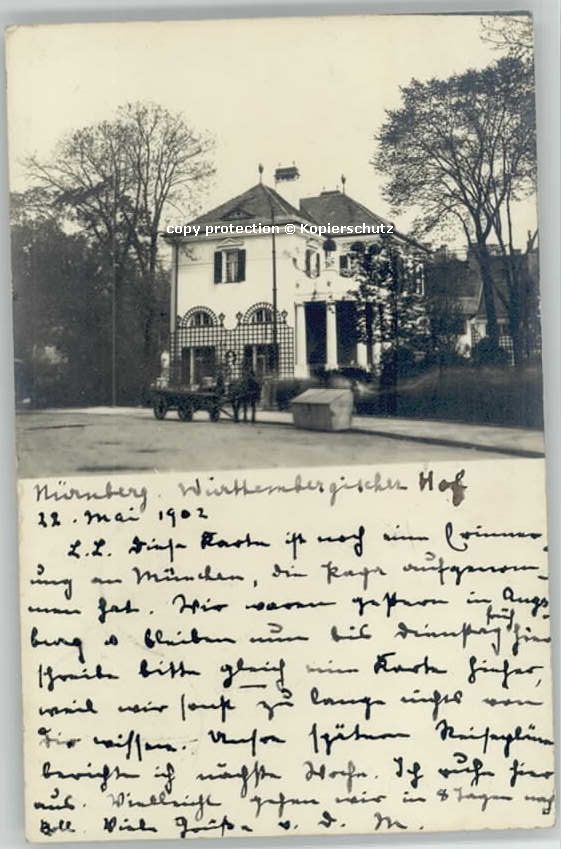 copy protection © Kopierschutz
Nürnberg. Württembergischer Hof
22. Mai 1902
L. L. Diese Karte ist noch eine Erinner-
ung an München, die Papa aufgenom-
men hat. Wir waren gestern in Augs-
burg & bleiben nun bis Dienstag früh hier
schreibe bitte gleich eine Karte hieher,
weil wir sonst zu lange nichts von
Dir wissen. - Unsre spätern Reisepläne
berichte ich nächste Woche. Ich ruhe hier
aus. Vielleicht gehen wir in 8 Tagen nach
Boll. Viele Grüße v. d. M.